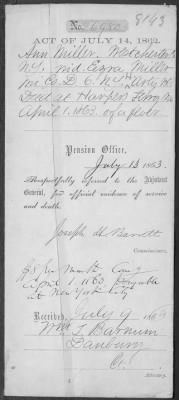 8143
No. 6980
ACT OF JULY 14, 1862.
Ann Miller, Westchester Co
N.Y. wid. Ezra Miller
Died at Harpers Ferry Va
April 1. 1863 of a fever.
Pension Office,
July 13 1863.
Respectfully referred to the Adjutant
General, for official evidence of service
and death.
Joseph H Barrett
Commissioner.
$8 per month. Com'g
April 1. 1863 Payable
at New York City
Received, July 9 1863
Wm T. Barnum
Danbury
Ct.
Attorney.